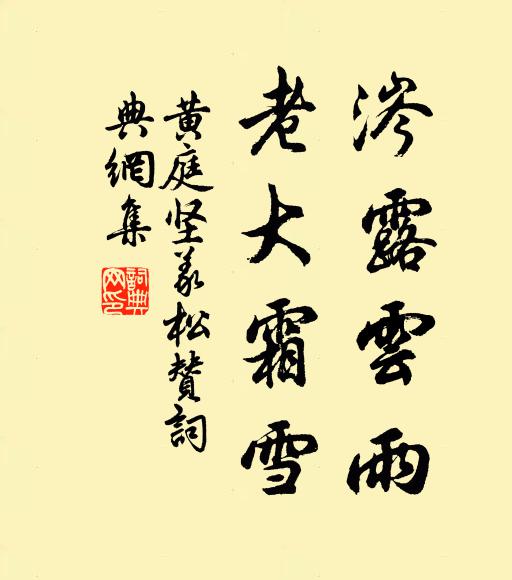 涔露雲雨
老大霜雪
黄庭坚義松贊詞
典網集
詞典網印